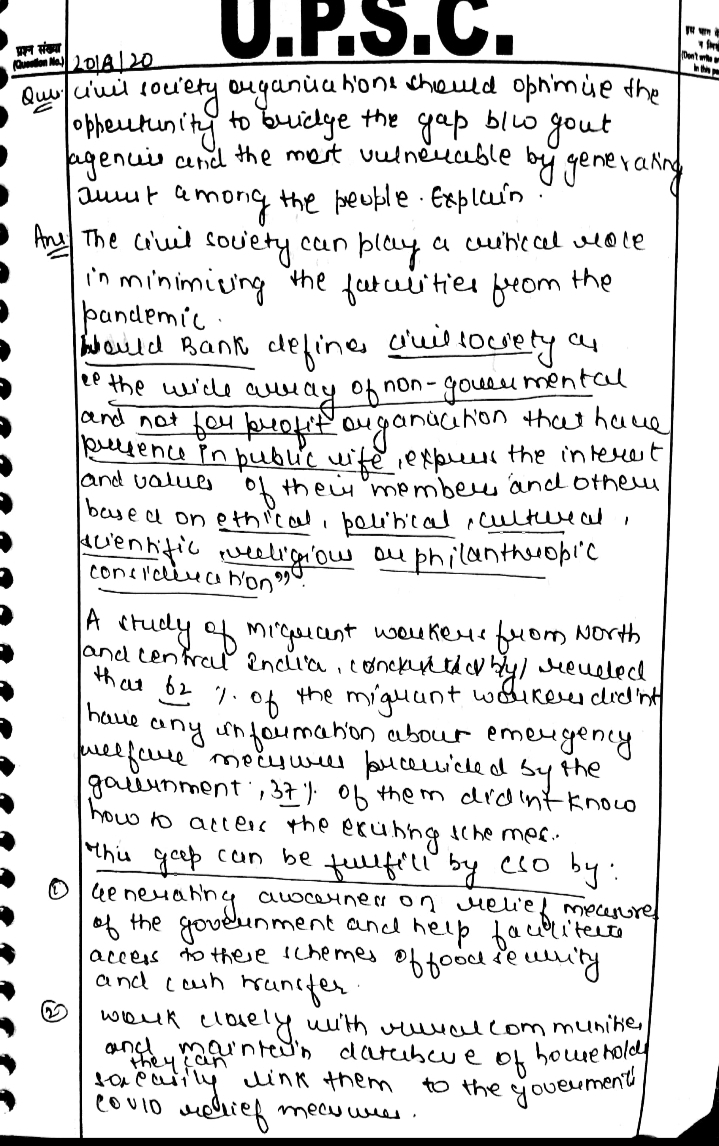 U.P.S.C.
प्रश्न संख्या
(Question No.)
20/8/20
इस भाग में
(Don't write
in this
Ques Civil society organisations should optimise the
oppertunity to bridge the gap b/w govt
agencies and the most vulnerable by generating
trust among the people. Explain.
Ans The civil society can play a critical role
in minimising the fatalities from the
pandemic.
World Bank defines civil society as
"the wide array of non-governmental
and not for profit organisation that have
presence in public life, express the interest
and values of their members and others
based on ethical, political, cultural,
scientific, religious or philanthropic
consideration".
A study of migrant workers from North
and central India, conducted by, reveled
that 62 % of the migrant workers did'nt
have any information about emergency
welfare measures provided by the
government, 37% of them did'nt know
how to access the existing schemes.
This gap can be fullfill by CSO by:
① Generating awareness on relief measures
of the government and help facilitate
access to these schemes of food security
and cash transfer.
② work closely with rural communities
and maintain database of households
so they can easily link them to the government's
COVID relief measures.